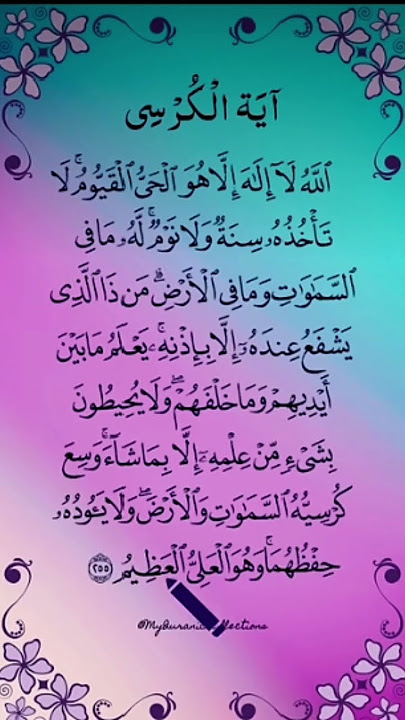 آيَة الْكُرْسِى
ٱللَّهُ لَآ إِلَٰهَ إِلَّا هُوَ ٱلْحَىُّ ٱلْقَيُّومُ ۚ لَا
تَأْخُذُهُۥ سِنَةٌ وَلَا نَوْمٌ ۚ لَّهُۥ مَا فِى
ٱلسَّمَٰوَٰتِ وَمَا فِى ٱلْأَرْضِ ۗ مَن ذَا ٱلَّذِى
يَشْفَعُ عِندَهُۥٓ إِلَّا بِإِذْنِهِۦ ۚ يَعْلَمُ مَا بَيْنَ
أَيْدِيهِمْ وَمَا خَلْفَهُمْ ۖ وَلَا يُحِيطُونَ
بِشَىْءٍ مِّنْ عِلْمِهِۦٓ إِلَّا بِمَا شَآءَ ۚ وَسِعَ
كُرْسِيُّهُ ٱلسَّمَٰوَٰتِ وَٱلْأَرْضَ ۖ وَلَا يَـُٔودُهُۥ
حِفْظُهُمَا ۚ وَهُوَ ٱلْعَلِىُّ ٱلْعَظِيمُ ٢٥٥